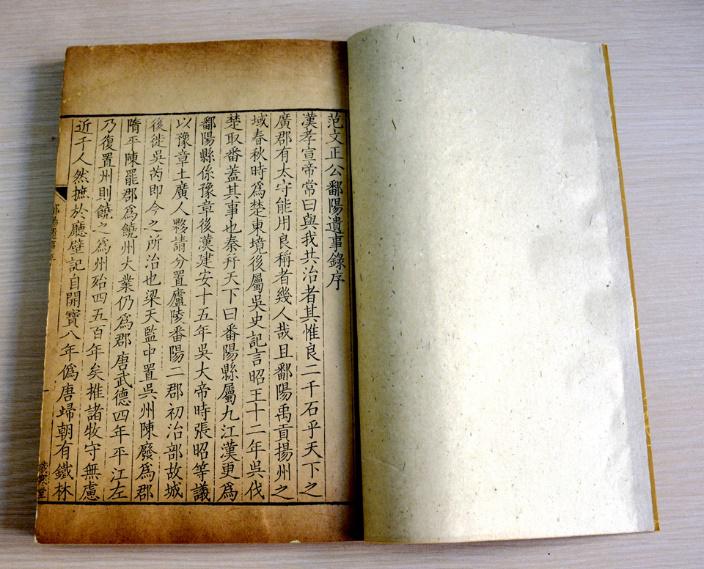 范文正公鄱陽遺事錄序
漢孝宣帝常曰與我共治者其惟良二千石乎天下之
廣郡有太守能用良稱者幾人哉且鄱陽禹貢揚州之
域春秋時為楚東境後屬吳史記言昭王十二年吳伐
楚取番蓋其事也秦并天下曰番陽縣屬九江漢更為
鄱陽縣係豫章後漢建安十五年吳大帝時張昭等議
以豫章土廣人夥請分置廬陵番陽二郡初治部故城
後徙吳芮即今之所治也梁天監中置吳州陳廢為郡
隋平陳罷郡為饒州大業仍為郡唐武德四年平江左
乃復置州則饒之為州殆四五百年矣推諸牧守無慮
近千人然摭於廳壁記自開寶八年偽唐歸朝有鐵林
歲寒堂